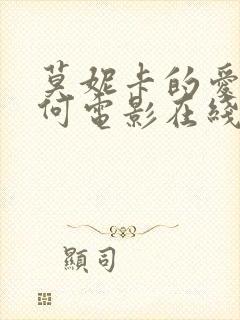 莫妮卡的愛
何電影在綫
顯司